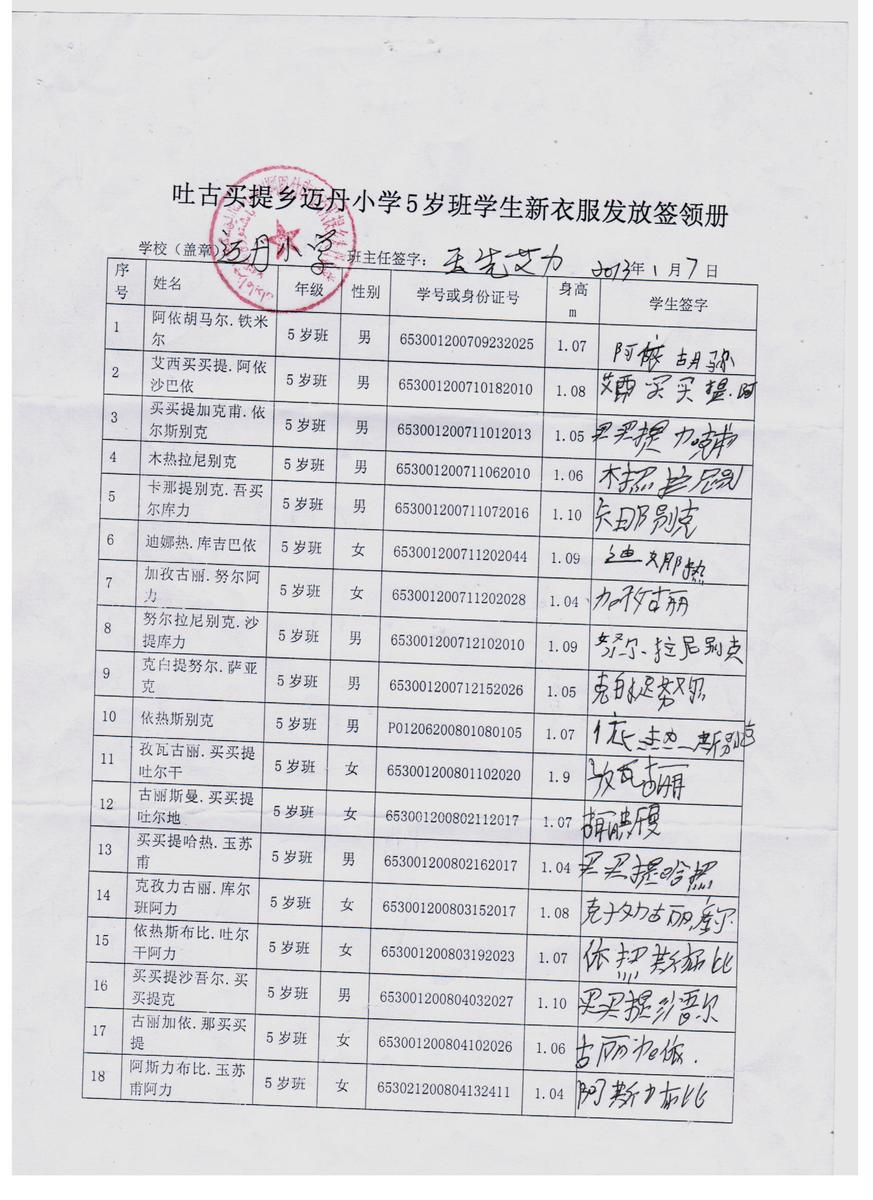 吐古买提乡迈丹小学5岁班学生新衣服发放签领册
学校（盖章）迈丹小学 班主任签字： 2013年1月7日
序号 姓名 年级 性别 学号或身份证号 身高m 学生签字
1 阿依胡马尔.铁米尔 5岁班 男 653001200709232025 1.07 阿依胡马尔
2 艾西买买提.阿依沙巴依 5岁班 男 653001200710182010 1.08 艾西买买提.阿
3 买买提加克甫.依尔斯别克 5岁班 男 653001200711012013 1.05 买买提加克甫
4 木热拉尼别克 5岁班 男 653001200711062010 1.06 木热拉尼别
5 卡那提别克.吾买尔库力 5岁班 男 653001200711072016 1.10 卡那别克
6 迪娜热.库吉巴依 5岁班 女 653001200711202044 1.09 迪娜热
7 加孜古丽.努尔阿力 5岁班 女 653001200711202028 1.04 加孜古丽
8 努尔拉尼别克.沙提库力 5岁班 男 653001200712102010 1.09 努尔.拉尼别克
9 克白提努尔.萨亚克 5岁班 男 653001200712152026 1.05 克白提努尔
10 依热斯别克 5岁班 男 P01206200801080105 1.07 依热斯别克
11 孜瓦古丽.买买提吐尔干 5岁班 女 653001200801102020 1.9 孜瓦古丽
12 古丽斯曼.买买提吐尔地 5岁班 女 653001200802112017 1.07
13 买买提哈热.玉苏甫 5岁班 男 653001200802162017 1.04 买买提哈热
14 克孜力古丽.库尔班阿力 5岁班 女 653001200803152017 1.08 克子力古丽.库尔.
15 依热斯布比.吐尔干阿力 5岁班 女 653001200803192023 1.07 依热斯布比
16 买买提沙吾尔.买买提克 5岁班 男 653001200804032027 1.10 买买提沙吾尔
17 古丽加依.那买买提 5岁班 女 653001200804102026 1.06 古丽加依.
18 阿斯力布比.玉苏甫阿力 5岁班 女 653021200804132411 1.04 阿斯力布比